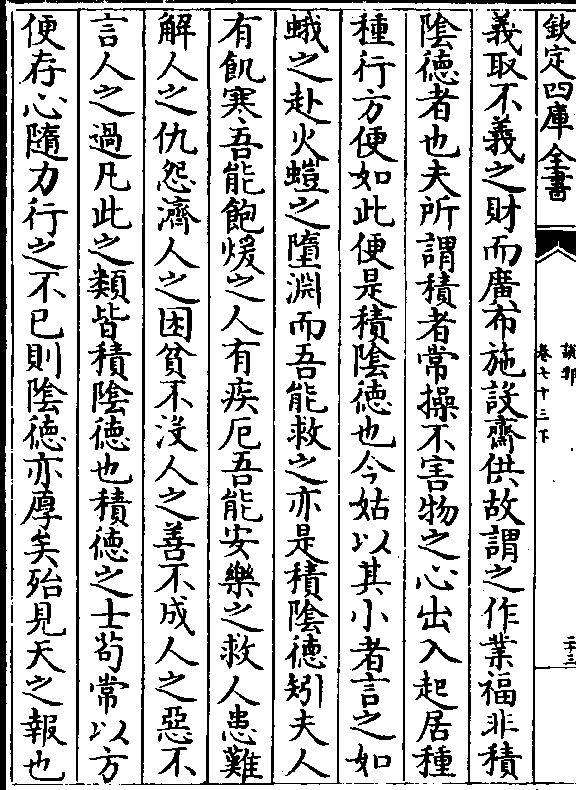 欽定四庫全書
說郛
卷七十三下
二十三
義取不義之財而廣布施設齋供故謂之作業福非積
陰德者也夫所謂積者常操不害物之心出入起居種
種行方便如此便是積陰德也今姑以其小者言之如
蛾之赴火螘之墮淵而吾能救之亦是積陰德矧夫人
有飢寒吾能飽煖之人有疾厄吾能安樂之救人患難
解人之仇怨濟人之困貧不沒人之善不成人之惡不
言人之過凡此之類皆積陰德也積德之士茍常以方
便存心隨力行之不已則陰德亦厚矣殆見天之報也